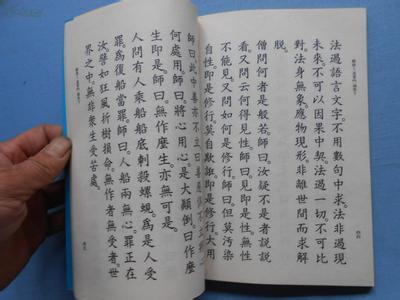 法過語言文字。不用數句中求。法非過現
未來。不可以因果中契。法過一切。不可比
對。法身無象。應物現形。非離世間而求解
脱。
僧問何者是般若。師曰。汝疑不是者試說
看。又問云何得見性。師曰。見即是性。無性
不能見。又問如何是修行。師曰。但莫污染
自性。即是修行。莫自欺誑。即是修行。大用
師曰。此中善亦不立。曰。善惡俱不立。
何處用。師曰。將心用心。是大顛倒。曰。作麼
生即是。師曰。無作麼生。亦無可是。
人問。有人乘船。船底刺殺螺蜆。為是人受
罪。為復船當罪。師曰。人船兩無心。罪正在
汝。譬如狂風折樹損命。無作者。無受者。世
界之中。無非眾生受苦處。